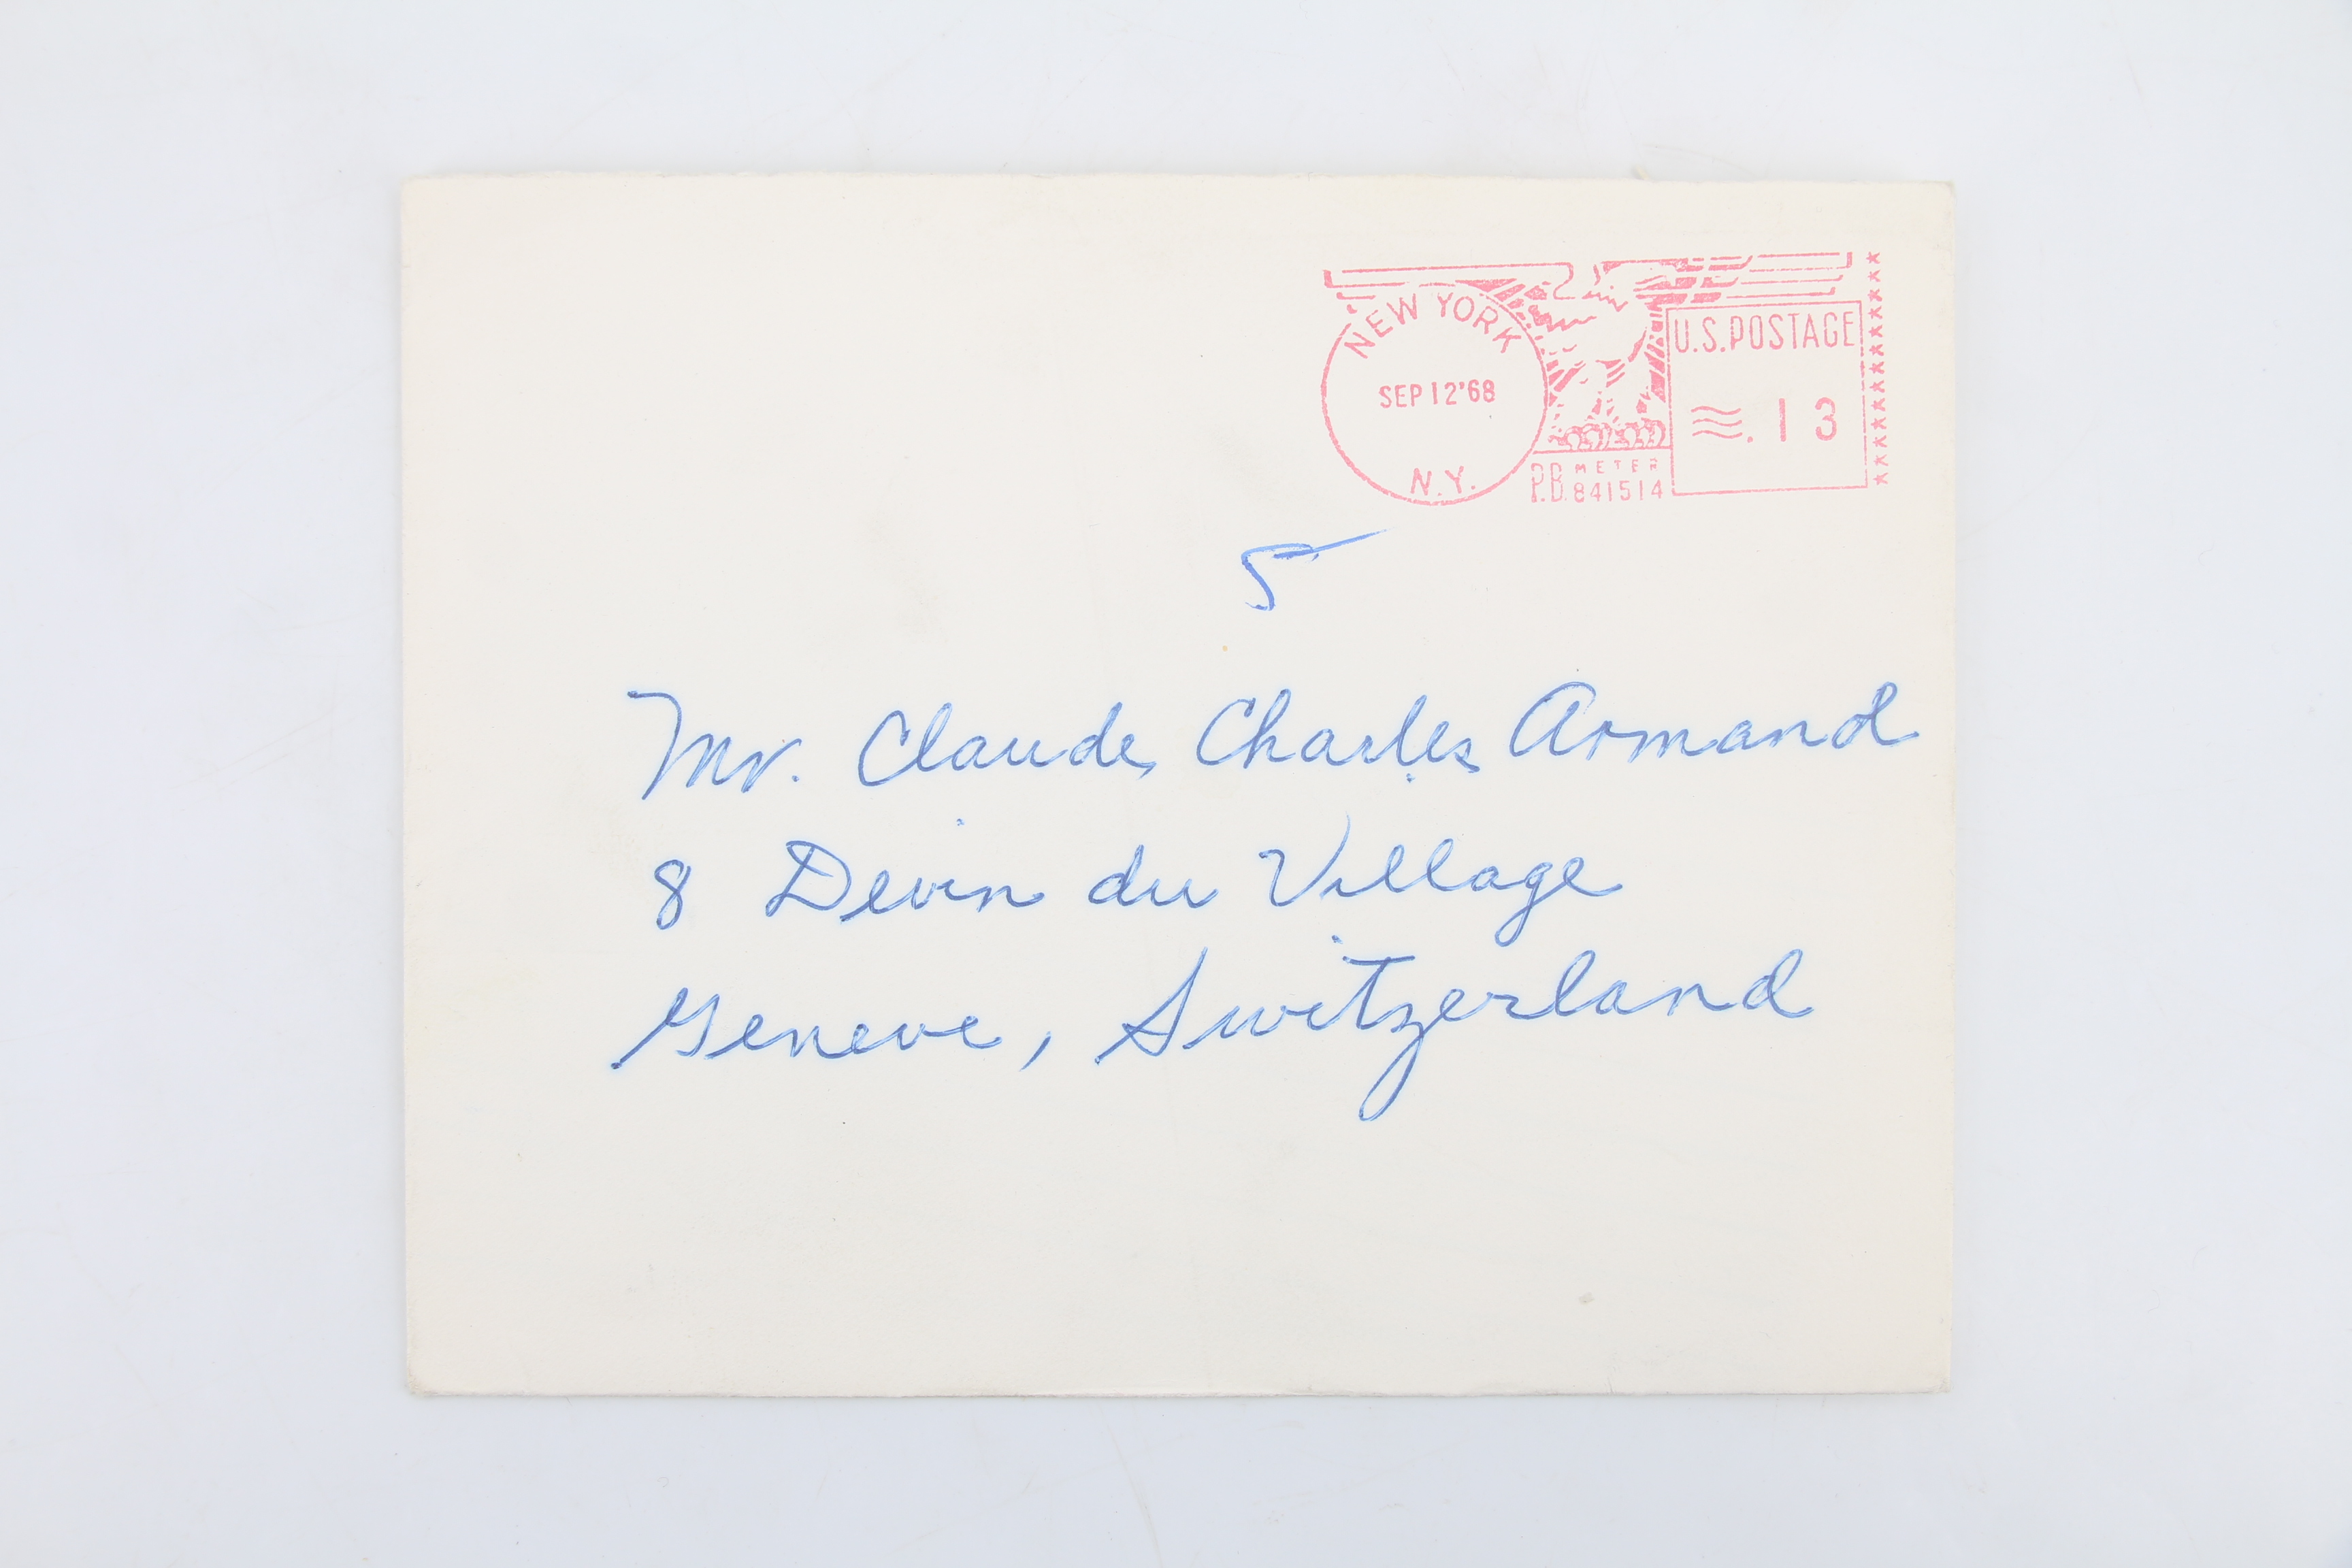 NEW YORK
SEP 12'68
N.Y.
P.B. METER
841514
U.S. POSTAGE
.13
5
Mr. Claude Charles Armand
8 Devin du Village
Geneve, Switzerland